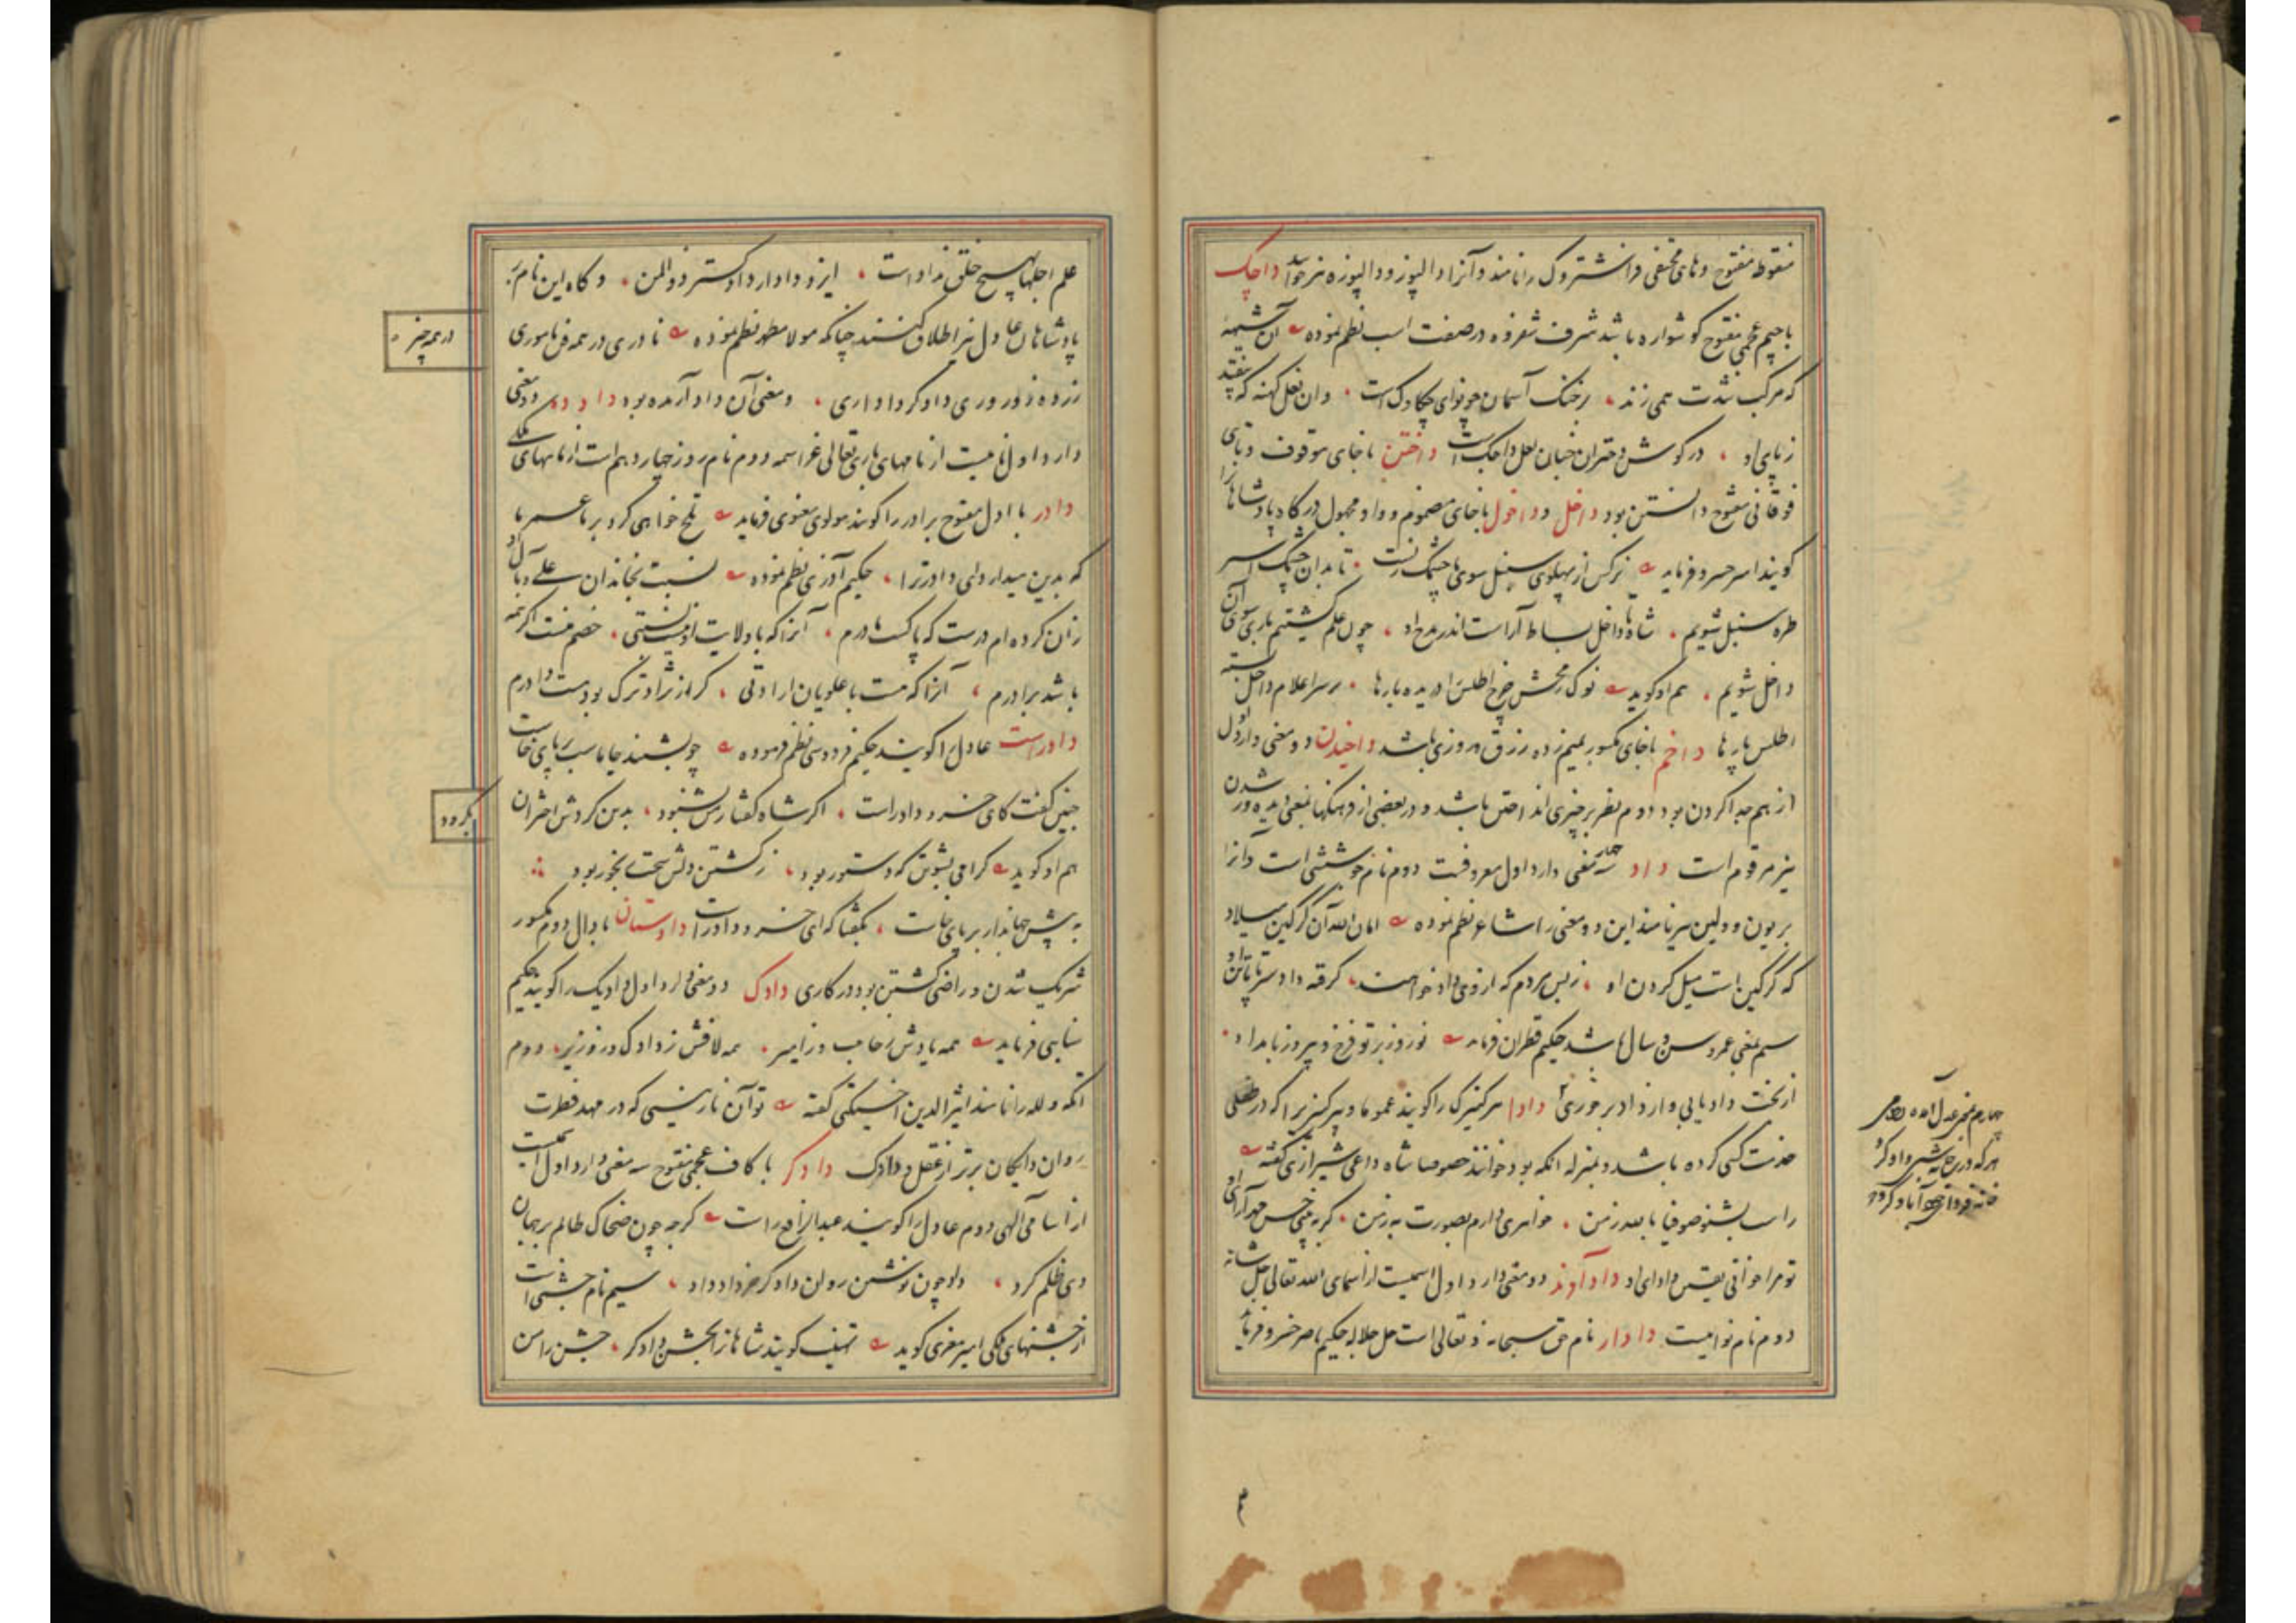 منقوطه مفتوح و های مختفی فراشتروک را نامند و آنرا دالپوز و دالپوزه نیز خوانند داچک
باجیم عجمی مفتوح گوشواره باشد شرف شفروه در صفت اسب نظم نموده آن شیهه
که مرکب شدت همی زند برخنگ آسمان چو نوای چکاوک است وان نعل کهنه که بیفتد
ز پای او در گوش دختران جنان لعل داچک است داختن با خای موقوف و تای
فوقانی مفتوح دانستن بود داخل و داخول با خای مضموم و واو مجهول درگاه پادشاهان را
گویند امیر خسرو فرماید نرگس از پهلوی سنبل سوی ما چشمک زنست تا بدان چشمک اسیر
طره سنبل شویم شاه ما داخل بساط آراست اندر مدح او چون علم گشتیم باری سوی آن
داخل شویم هم او گوید نوک رمحش چرخ اطلس را دریده بارها بر سر اعلام داخل بسته
اطلس پارها داخم با خای مکسور بمیم زده رزق و روزی باشد داخیدن دو معنی دارد اول
از هم جدا کردن بود دوم نظر بر چیزی انداختن باشد و در بعضی از فرهنگها بمعنی دیده ور شدن
نیز مرقوم است داد سه معنی دارد اول معروفست دوم نام جوششی است و آنرا
بریون و ولین نیز نامند این دو معنی را شاعر نظم نموده امان الله آن گرگین میلاد
که گرگین است میل گردن او ز بس مردم که از وی داد خواهند گرفته داد سر تا پای تن او
سیم بمعنی عمر و سن و سال باشد حکیم قطران فرماید نوروز بر تو فرخ و پیروز بامداد
از بخت داد یابی و از داد برخوری دادا سر کنیزک را گویند عموما و پیر کنیزیرا که در طفلی
خدمت کسی کرده باشد و بمنزله انکه بود خوانند خصوصا شاه داعی شیرازی گفته
راست بشنو صوفیا بالله ز من خواهری دارم بصورت به ز من
تو مرا خوانی دادای او داد آوند دو معنی دارد اول اسمیست از اسمای الله تعالی جل شانه
دوم نام نوائیست دادار نام حق سبحانه و تعالی است جل جلاله حکیم ناصر خسرو فرماید
چهارم بمعنی عدل آمده رومی
هر که در خانه‌اش داد کرد
خانه فردای خود آباد کرد
علم اجلها بهیچ خلق نداد است ایزد دادار داد گستر ذوالمن و گاه این نام بر
پادشاهان عادل نیز اطلاق کنند چنانکه مولانا مطهر نظم نموده نادری در همه فن ناموری
زردۀ زور وری دادگر داداری و معنی آن داد آرنده بود دادود دو معنی
دارد اول نامیست از نامهای باری تعالی عز اسمه دوم نام روز چهاردهم است از ماههای ملکی
دادر با اول مفتوح برادر را گویند مولوی معنوی فرماید تلخ خواهی کرد بر ما عمر ما
که بدین میداردای دادر ترا حکیم آذری نظم نموده نسبت بخاندان علی و بآل او
زان کرده ام درست که پاکست مادرم آنرا که با ولایت او نیست نسبتی خصم منست اگر همه
باشد برادرم آنرا که هست با علویان ارادتی گر از نژاد ترک بود هست دادرم
دادراست عادل را گویند حکیم فردوسی نظم فرموده چو بشنید جاماسب بر پای خاست
چنین گفت کای خسرو دادراست اگر شاه گفتار من بشنود بدین گردش اختران
هم او گوید گرامی بشوتن که دستور بود ز کشتن دلش سخت رنجور بود
به پیش جهاندار بر پای خاست بگفتا که ای خسرو دادراست دادستان با دال دوم مکسور
شریک شدن و راضی گشتن بود در کاری دادک دو معنی دارد اول دادیک را گویند حکیم
سنایی فرماید همه یادش ز حاجب و ز امیر همه لافش ز دادک و ز وزیر دوم
انکه و لله را نامند اثیرالدین اخسیکتی گفته تو آن نازنینی که در مهد فطرت
روان دایگان برتر از عقل و دادک دادگر با کاف عجمی مفتوح سه معنی دارد اول اسمیست
از اسامی آلهی دوم عادل را گویند عبدالرافع راست گرچه چون ضحاک ظالم بر جهان
دی ظلم کرد داد چون نوشین روان دادگر خرداد داد سیم نام جشنی است
از جشنهای ملکی امیر معزی گوید تهنیت گویند شاهان را بجشن دادگر جشن را من
در همه چیز
بگرود